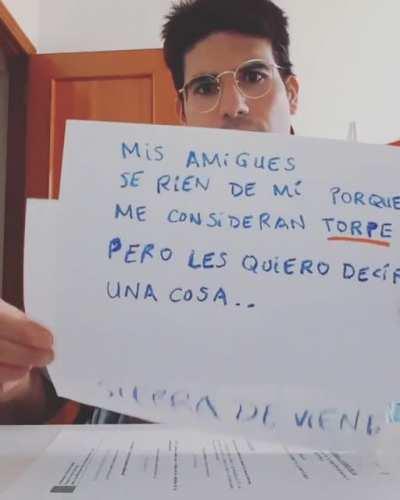 MIS AMIGUES
SE RIEN DE MÍ PORQUE
ME CONSIDERAN TORPE
PERO LES QUIERO DECIR
UNA COSA..
DE